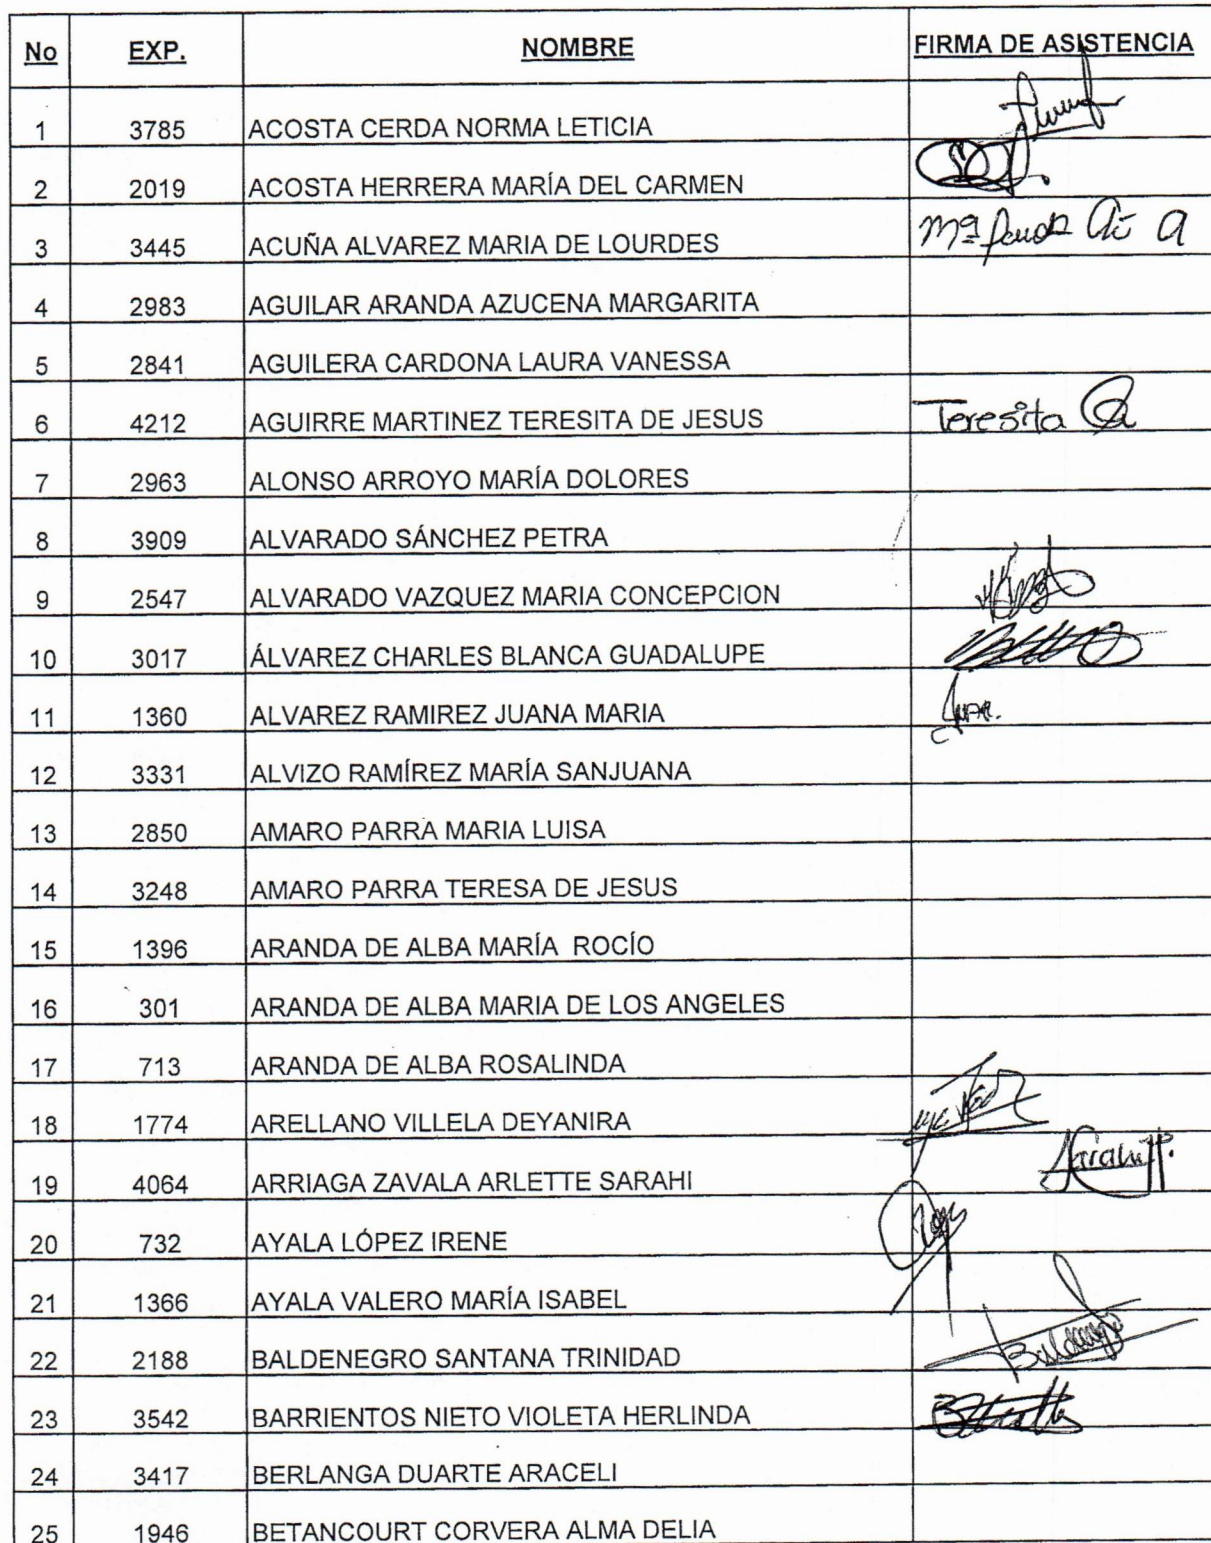 No EXP. NOMBRE FIRMA DE ASISTENCIA
1 3785 ACOSTA CERDA NORMA LETICIA
2 2019 ACOSTA HERRERA MARÍA DEL CARMEN
3 3445 ACUÑA ALVAREZ MARIA DE LOURDES Mª
4 2983 AGUILAR ARANDA AZUCENA MARGARITA
5 2841 AGUILERA CARDONA LAURA VANESSA
6 4212 AGUIRRE MARTINEZ TERESITA DE JESUS Teresita
7 2963 ALONSO ARROYO MARÍA DOLORES
8 3909 ALVARADO SÁNCHEZ PETRA
9 2547 ALVARADO VAZQUEZ MARIA CONCEPCION
10 3017 ÁLVAREZ CHARLES BLANCA GUADALUPE
11 1360 ALVAREZ RAMIREZ JUANA MARIA
12 3331 ALVIZO RAMÍREZ MARÍA SANJUANA
13 2850 AMARO PARRA MARIA LUISA
14 3248 AMARO PARRA TERESA DE JESUS
15 1396 ARANDA DE ALBA MARÍA ROCÍO
16 301 ARANDA DE ALBA MARIA DE LOS ANGELES
17 713 ARANDA DE ALBA ROSALINDA
18 1774 ARELLANO VILLELA DEYANIRA
19 4064 ARRIAGA ZAVALA ARLETTE SARAHI
20 732 AYALA LÓPEZ IRENE
21 1366 AYALA VALERO MARÍA ISABEL
22 2188 BALDENEGRO SANTANA TRINIDAD
23 3542 BARRIENTOS NIETO VIOLETA HERLINDA
24 3417 BERLANGA DUARTE ARACELI
25 1946 BETANCOURT CORVERA ALMA DELIA